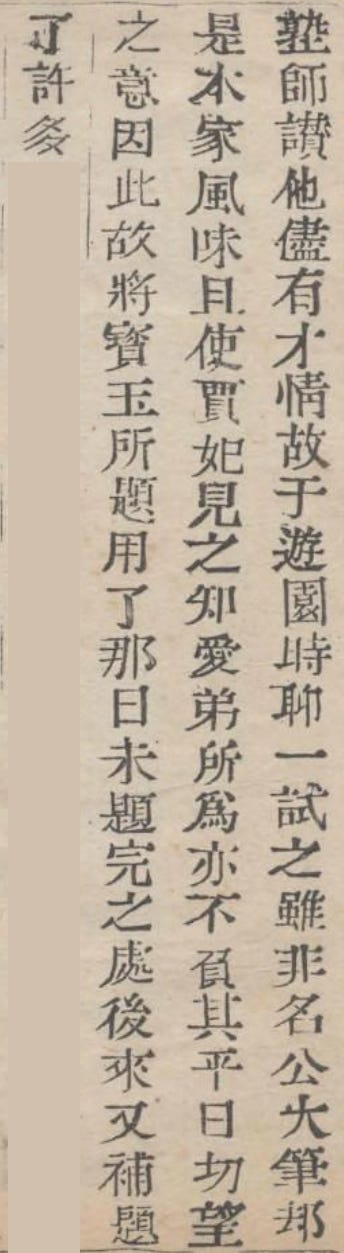 塾師讃他儘有才情故于遊園時聊一試之雖非名公大筆却
是本家風味且使賈妃見之知愛弟所爲亦不負其平日切望
之意因此故將寶玉所題用了那日未題完之處後來又補題
了許多